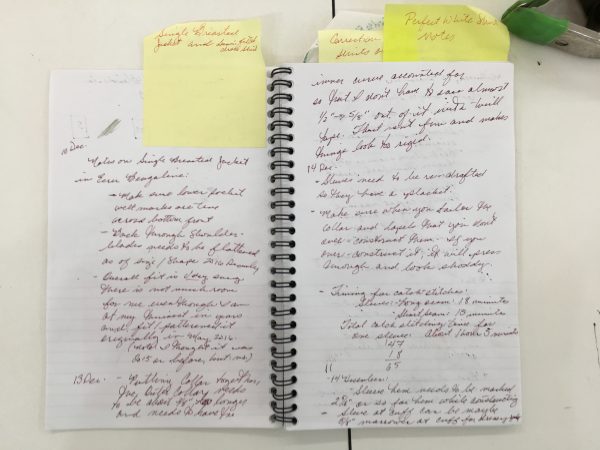 Single Breasted
Jacket and
Correction
Perfect White
Notes
10 Dec.
Notes on Single Breasted Jacket
in Ecru Bengaline:
- Make sure lower pocket
welt marks are
across bottom front
- Back through shoulder-
blades needs to be flattened
as of size/shape 2016 December
- Overall fit is very snug
There is not much room
for me even though I am
at my thinnest in years
and fit/patternized it
originally in May 2016.
(Note I thought it was
2015 or before, but no.)
13 Dec. - Putting collar together,
the collar needs
to be about longer
and needs to have
inner curve accounted for
so that I don't have to save almost
1/2" → 5/8" out of it with
tape. That isn't fun and makes
things look too rigid.
14 Dec.
- Sleeves need to be re-drafted
so they have a placket.
- Make sure when you tailor the
collar and lapels that you don't
over-construct them. If you
over-construct it, it will press
through and look shoddy.
- Timing for catch stitches:
Sleeves: Long seam: 18 minutes
Total catch stitching time for
one sleeve: about 1 hour 3 minutes
47
18
65
- 14 December:
- Sleeve hem needs to be marked
2 1/2" or so for hem while constructing
- Sleeve at cuff can be maybe
narrower at cuff for